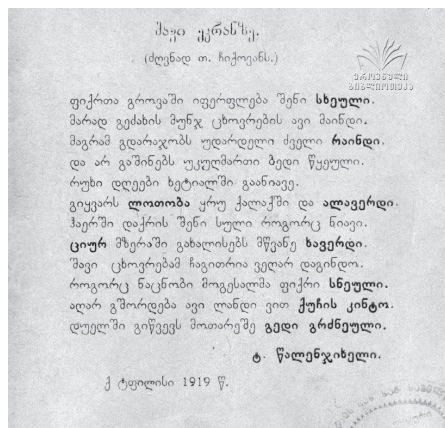 შავი ეკრანზე.
(ძღვნად თ. ჩიქოვანს.)
ეროვნული
ბიბლიოთეკა
ფიქრთა გროვაში იფერფლება შენი სხეული.
მარად გეძახის მუნჯ ცხოვრების ავი მაინდი.
მაგრამ გდარაჯობს უდარდელი ძველი რაინდი.
და არ გაშინებს უკუღმართი ბედი წყეული.
რუხი დღეები ხეტიალში გაანიავე.
გიყვარს ლოთობა ყრუ ქალაქში და ალავერდი.
ჰაერში დაქრის შენი სული როგორც ნიავი.
ციურ მზერაში გახალისებს მწვანე ხავერდი.
შავი ცხოვრებამ ჩაგითრია ვეღარ დაგინდო.
როგორც ნაცნობი მოგესალმა ფიქრი სნეული.
აღარ გშორდება ავი ლანდი ვით ქუჩის კინტო.
დუელში გიწვევს მოთარეშე გედი გრძნეული.
ტ. წალენჯიხელი.
ქ ტფილისი 1919 წ.